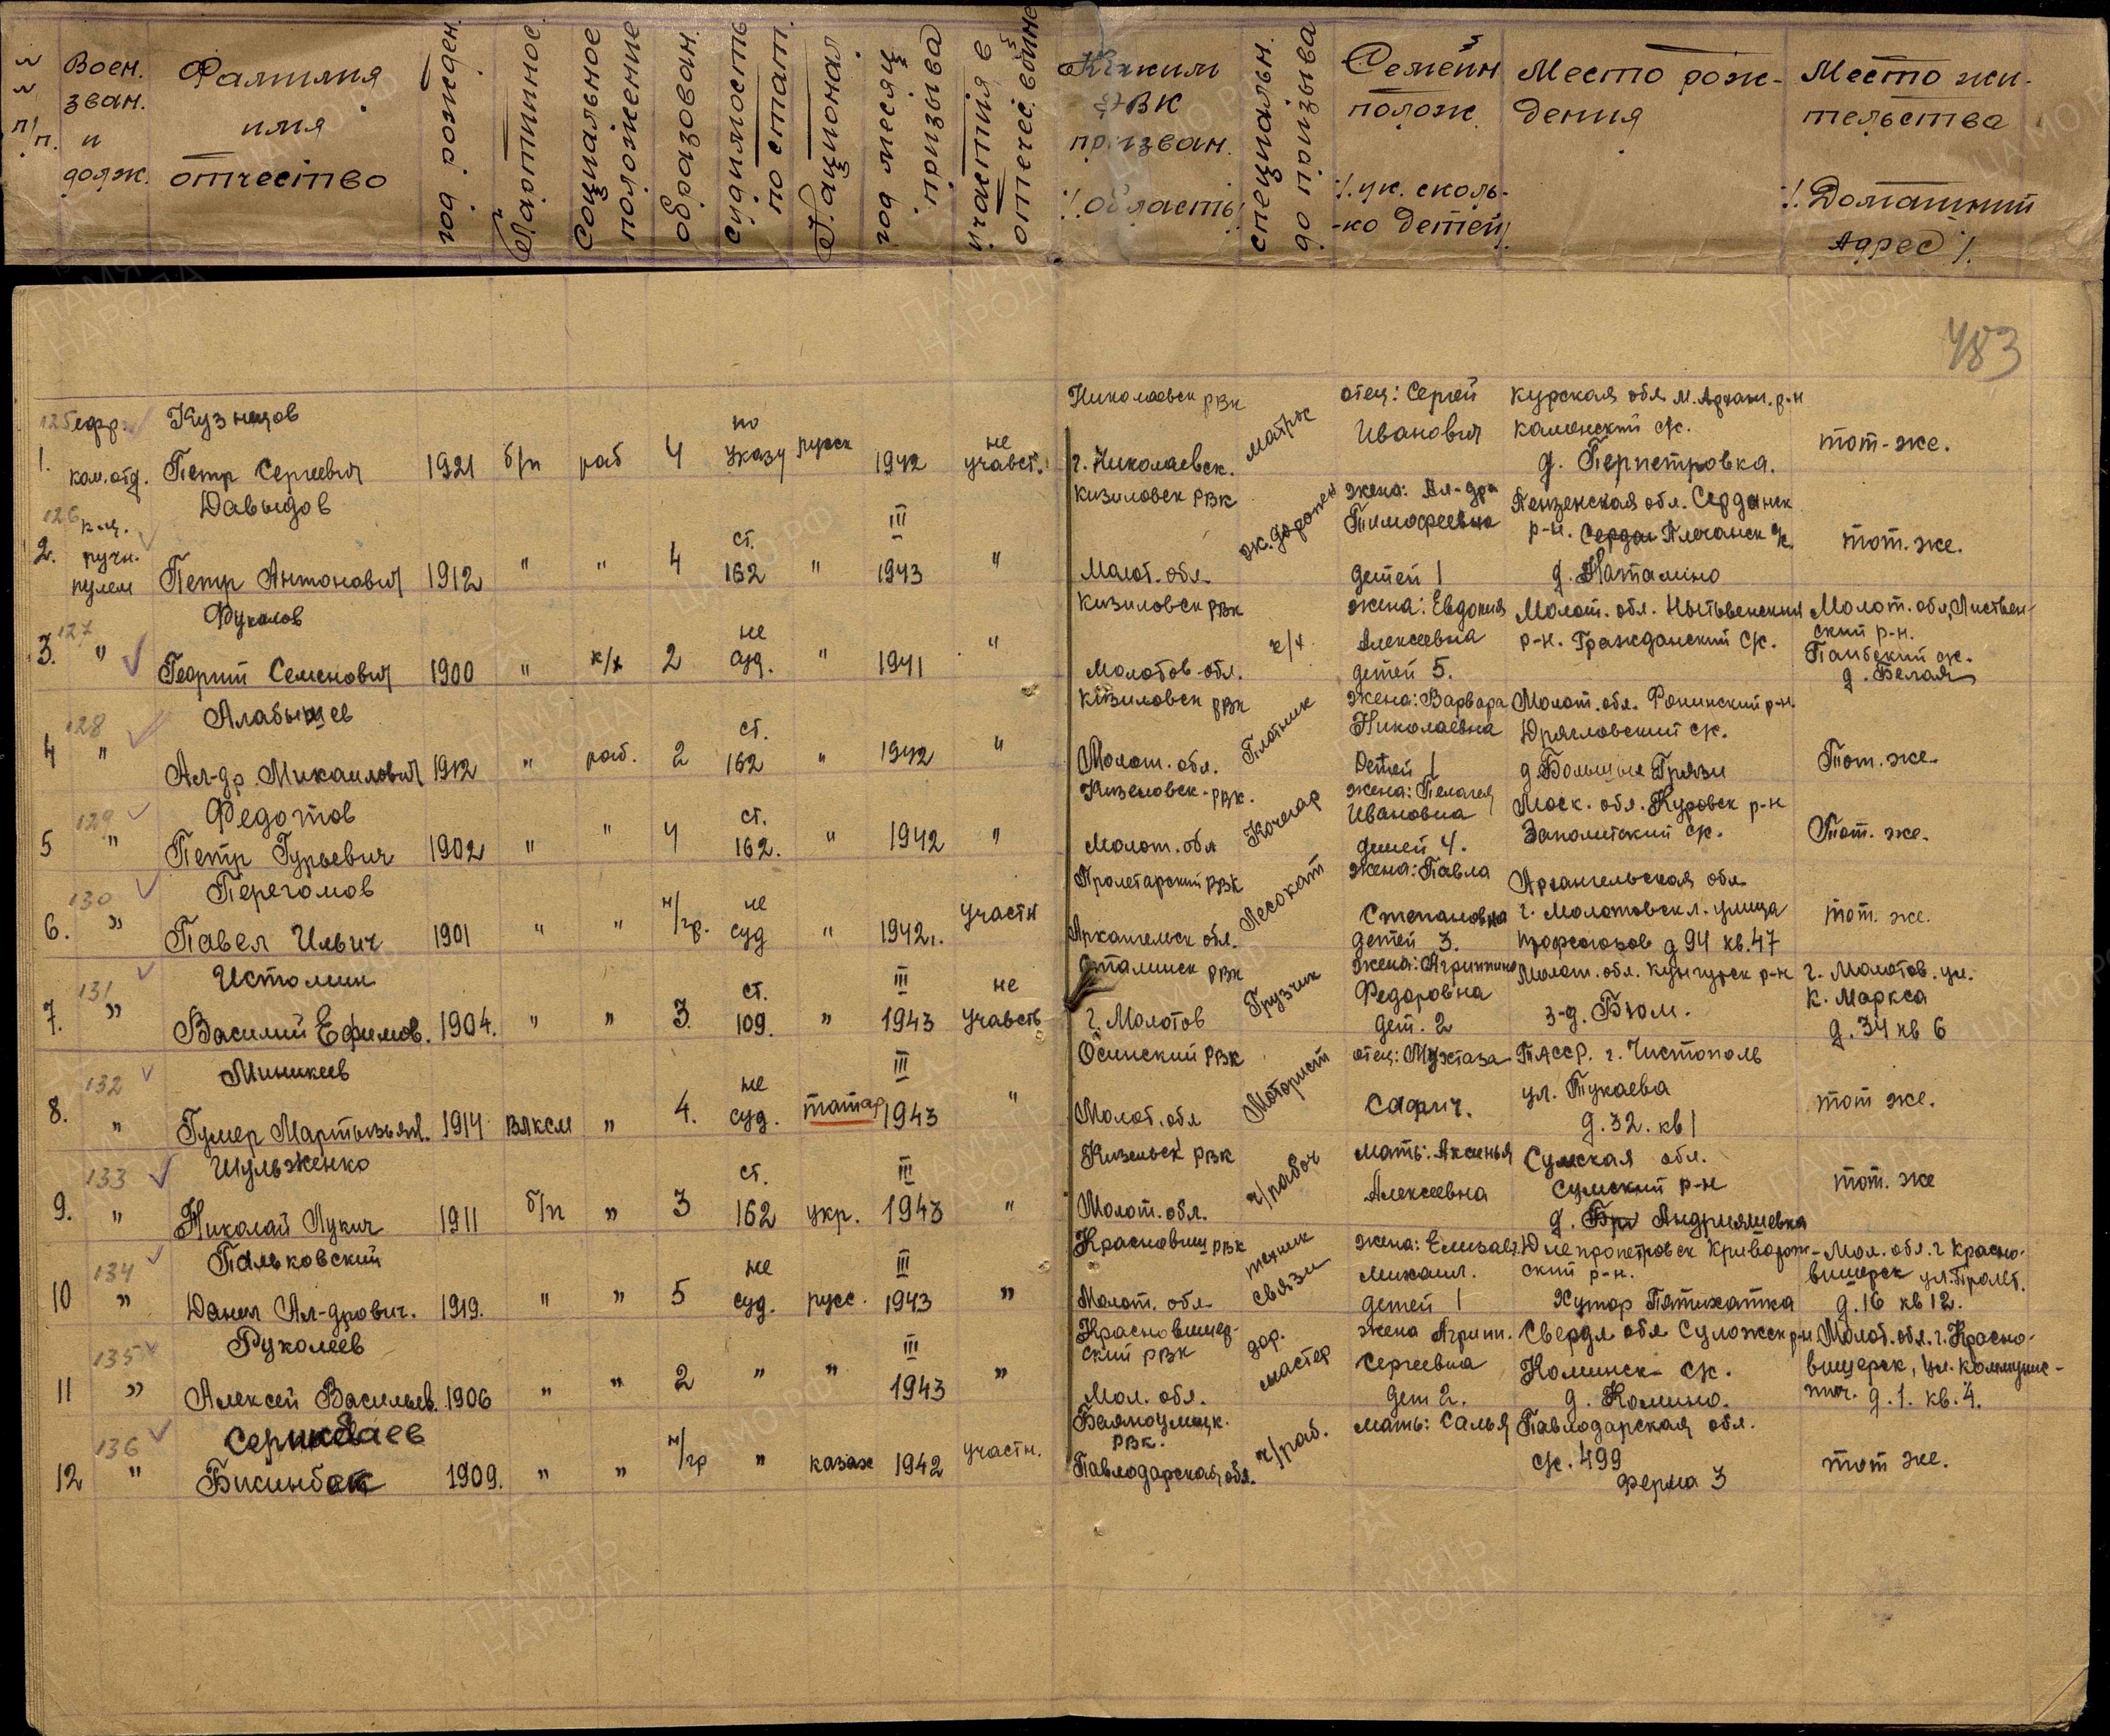 № № п/п.
Воен. зван. и долж.
Фамилия имя отчество
год рожден.
Партийное
Социальное положение
образован.
судимость по стат.
Национал.
год месяц призыва
участия в отечес. войне
Каким РВК призван. /область/
специальн. до призыва
Семейн полож. /ук. сколь-ко детей/
Место рож-дения
Место жи-тельства /Домашний Адрес/.
483
125 ефр. Кузнецов
1. ком.отд. Петр Сергеевич 1921 б/п раб 4 по указу русск 1942 не участ.
Николаевск РВК г. Николаевск. матрос отец: Сергей Иванович
Курская обл М. Архан. р-н Каменский с/с. д. Перпетровка. тот-же.
126 к-ц. Давыдов
2. ручн. пулем Петр Антонович 1912 " " 4 ст. 162 " III 1943 "
Кизиловск РВК Молот. обл. жена: Ал-дра Тимофеевна детей 1
Пензенская обл. Серданск р-н. д. тот. же.
127 Фукалов
3. " Георгий Семенович 1900 " к/х 2 не суд. " 1941 "
Кизиловск РВК Молотов-обл. жена: Евдокия Алексеевна детей 5.
Молот. обл. Нытвенский р-н. Гражданский с/с. Молот. обл, ский р-н. д. Белая
128 Алабышев
4 " Ал-др. Михаилович 1912 " раб. 2 ст. 162 " 1942 "
Кизиловск РВК Молот. обл. Плотник жена: Варвара Николаевна Детей 1
Молот. обл. р-н. с/с. д. Большие Грязи Тот. же.
129 Федотов
5 " Петр Гурьевич 1902 " " 4 ст. 162. " 1942 "
Кизеловск-РВК. Молот. обл Кочегар жена: Пелагея Ивановна детей 4.
Моск. обл. Куровск р-н с/с. Тот. же.
130 Перегомов
6. " Павел Ильич 1901 " " н/гр. не суд " 1942г. участн
Пролетарский РВК Архангельск обл. Лесокат жена: Павла Степановна детей 3.
Архангельская обл г. Молотовск л. улица профсоюзов д 94 кв.47 тот. же.
131 Истомин
7. " Василий Ефимов. 1904. " " 3. ст. 109. " III 1943 не участв
Сталинск РВК г. Молотов Грузчик жена: Агриппина Федоровна дет. 2
Молот. обл. Кунгурск р-н з-д. Бюм. г. Молотов. ул. К. Маркса д. 34 кв 6
132 Миникеев
8. " Гумер Мартызьян. 1914 ВЛКСМ " 4. не суд. татар 1943 III "
Осинский РВК Молот. обл Моторист отец: Сафич.
ТАССР. г. Чистополь ул. Тукаева д. 32. кв 1 тот же.
133 Шульженко
9. " Николай Лукич 1911 б/п " 3 ст. 162 укр. III 1943 "
Кизельск РВК Молот. обл. ч/рабоч Мать: Аксинья Алексеевна
Сумская обл. Сумский р-н д. Андрияшевка тот. же
134 Пальковский
10 " Данил Ал-дрович. 1919. " " 5 не суд. русс. III 1943 "
Красновиш РВК Молот. обл. техник связи жена: Елизавет. Михаил. детей 1
Днепропетровск Криворож-ский р-н. Хутор Пятихатка Мол. обл. г Красно-вишерск ул. Пролет. д. 16 кв 12.
135 Руколеев
11 " Алексей Васильев. 1906 " " 2 " " III 1943 "
Красновишер-ский РВК Мол. обл. дор. мастер жена Агрипп. Сергеевна дет 2.
Свердл обл Суложск р-н Коминск с/с. д. Комино. Молот. обл. г. Красно-вишерск, ул. Коммунис-тич. д. 1. кв. 4.
136 Серикбаев
12 " Бисинбек 1909. " " н/гр " казах 1942 участн.
РВК. Павлодарская обл. ч/раб. мать: Салья
Павлодарская обл. с/с. 499 ферма 3 тот же.
ПАМЯТЬ НАРОДА